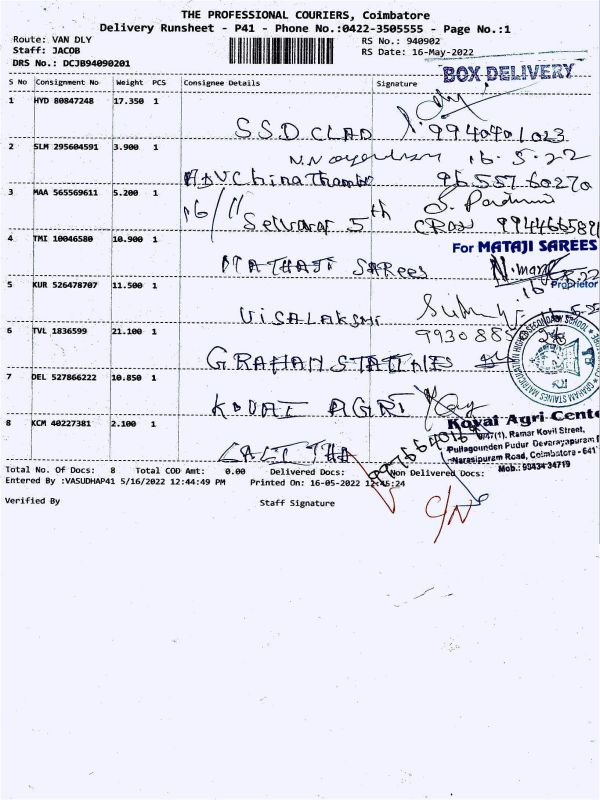 THE PROFESSIONAL COURIERS, Coimbatore
Delivery Runsheet - P41 - Phone No.:0422-3505555 - Page No.:1
Route: VAN DLY RS No.: 940902
Staff: JACOB RS Date: 16-May-2022
DRS No.: DCJB94090201
BOX DELIVERY
S No Consignment No Weight PCS Consignee Details Signature
1 HYD 80847248 17.350 1
SSD CLAD 9940401023
2 SLM 295604591 3.900 1
16.5.22
ADV Chinathambi 9655760270
3 MAA 565569611 5.200 1
16/11 Selvaraj 5th
4 TMI 10046580 10.900 1
For MATAJI SAREES
MATHAJI SARees
Proprietor
5 KUR 526478707 11.500 1
VISALAKSHI
6 TVL 1836599 21.100 1
GRAHAM STAINES
7 DEL 527866222 10.850 1
KOVAI AGRI
Kovai Agri Cente
6/47(1), Ramar Kovil Street,
Pullagounden Pudur Devarayapuram
Narasipuram Road, Coimbatore - 641
Mob.: 90434 34719
8 KCM 40227381 2.100 1
LALITHA
Total No. Of Docs: 8 Total COD Amt: 0.00 Delivered Docs: Non Delivered Docs:
Entered By :VASUDHAP41 5/16/2022 12:44:49 PM Printed On: 16-05-2022 12:45:24
C/N
Verified By Staff Signature